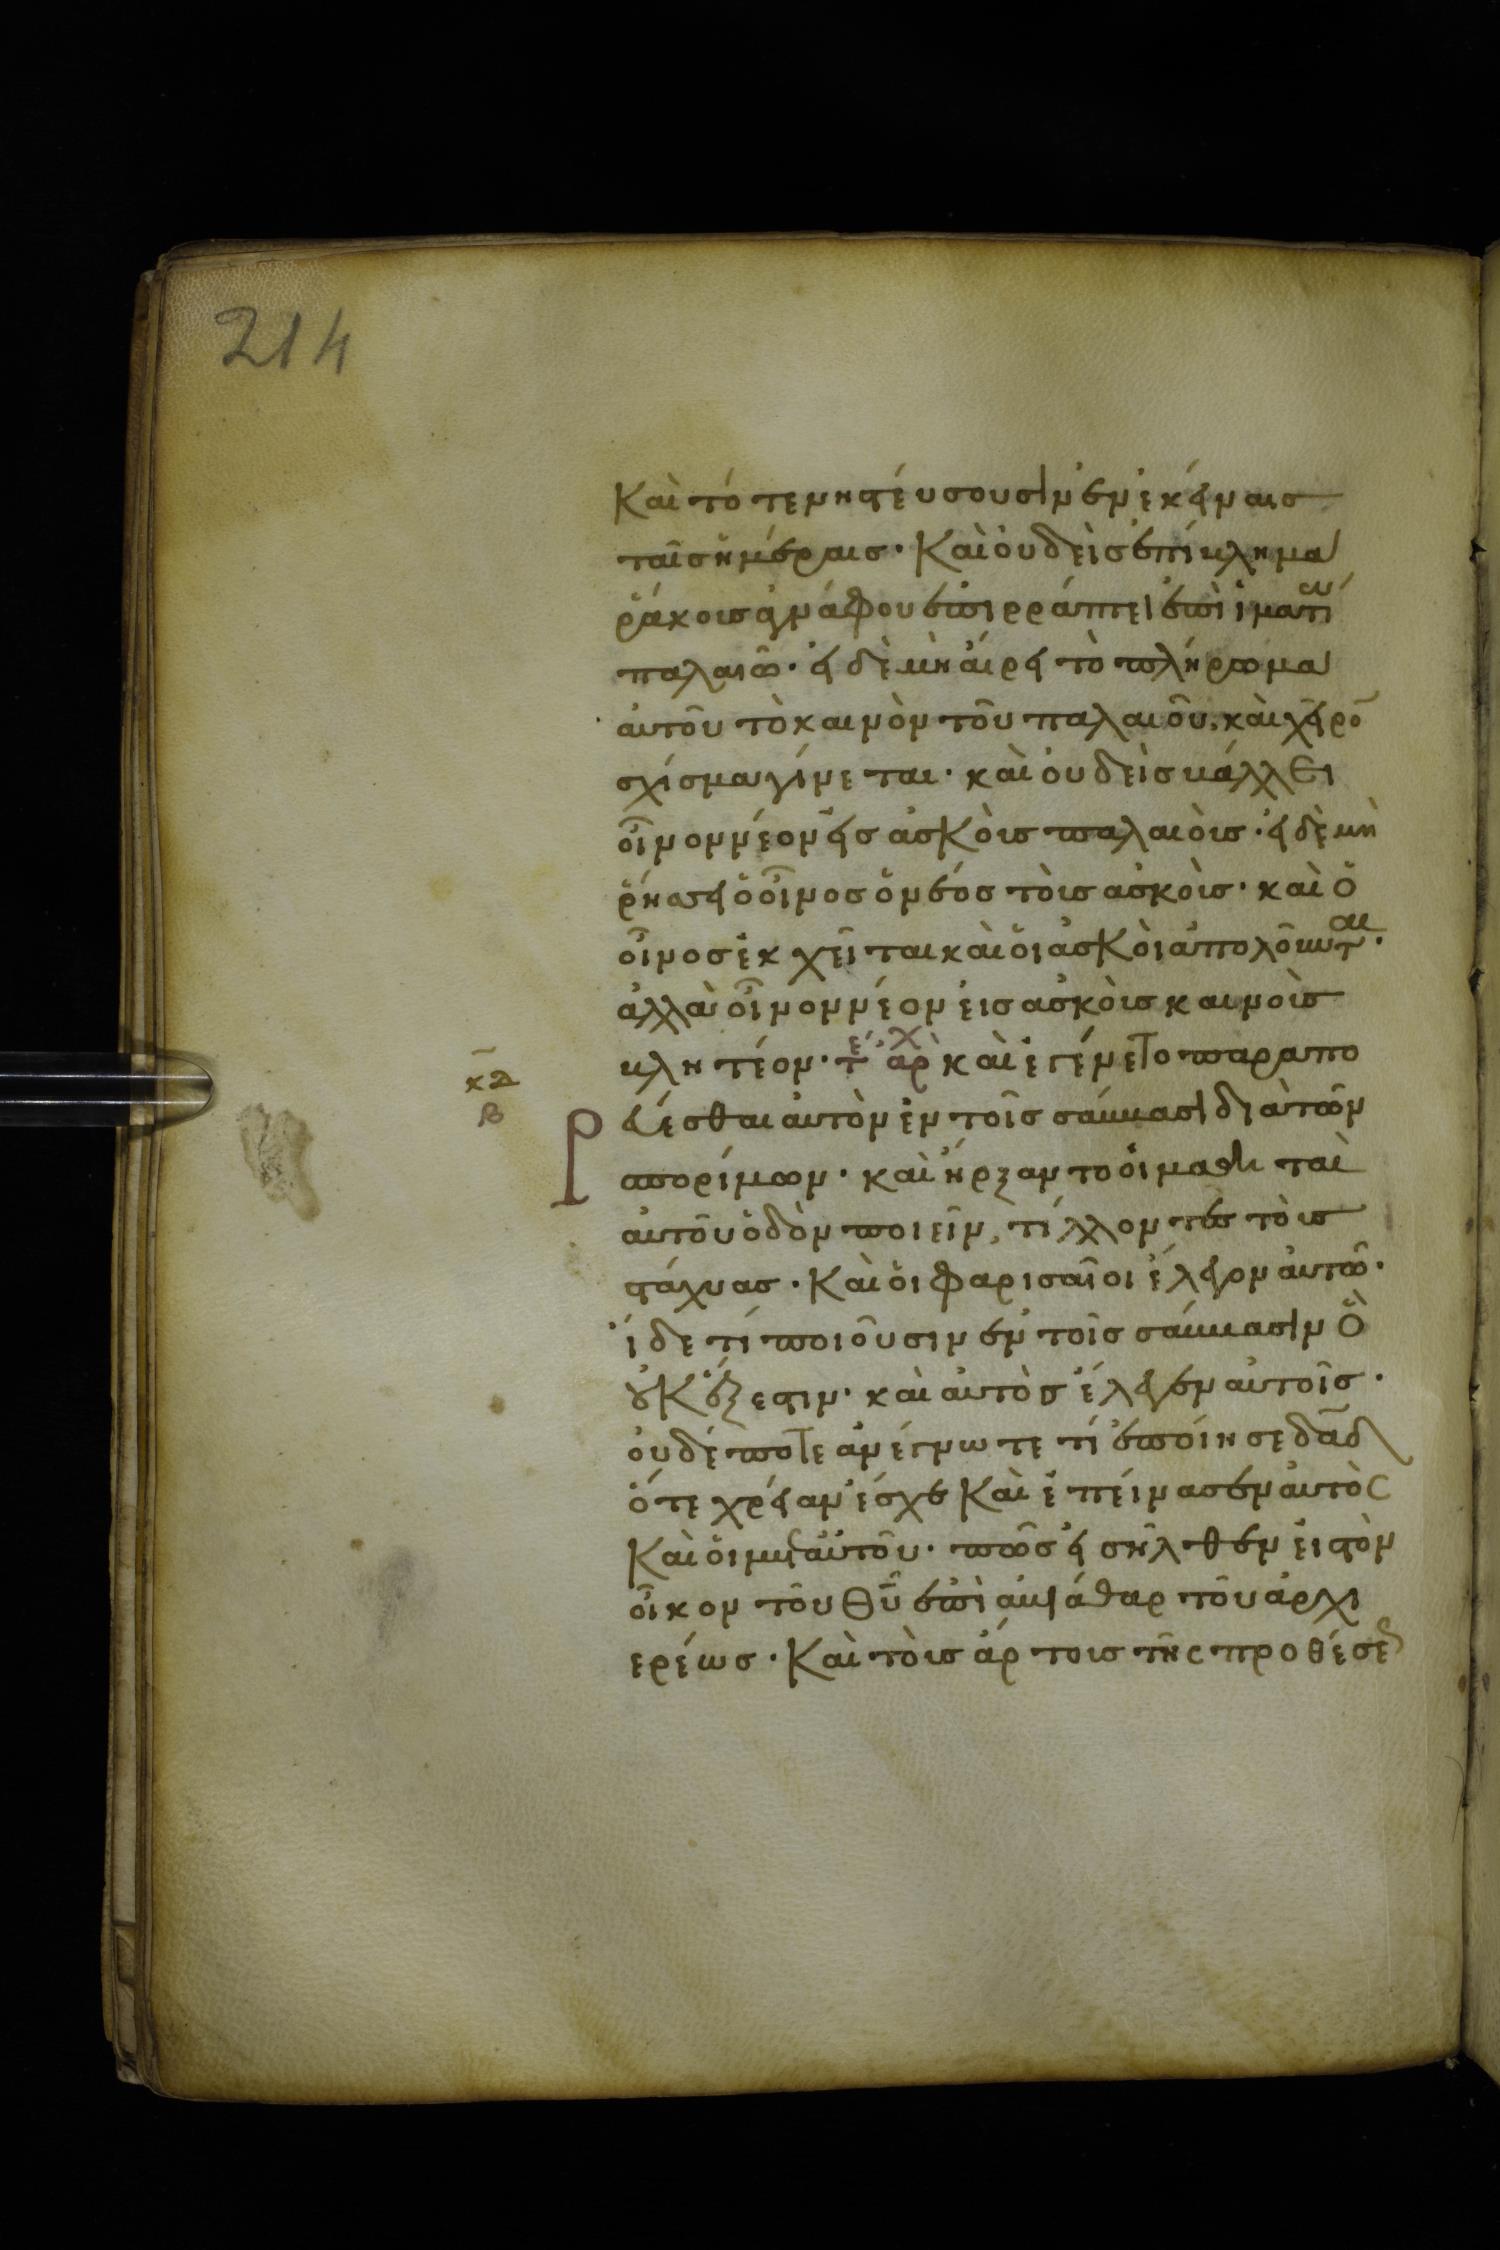 214
Καὶ τότε νηστέυσουσιν ἐν ἐκείναις
ταῖς ἡμέραις· Καὶ ὀυδεὶς ἐπίβλημα
ῥάκους ἀγνάφου ἐπιρράπτει ἐπὶ ἱματίω
παλαιῶ· εἰ δὲ μὴ ἄιρει τὸ πλήρωμα
ἀυτοῦ τὸ καινὸν τοῦ παλαιοῦ, καὶ χεῖρο̄
σχίσμα γίνεται· καὶ ὀυδεὶς βάλλει
οἶνον νέον εἰς ἀσκοὺς παλαιοὺς· εἰ δὲ μὴ
ῥήσσει ὁ οἶνος ὁ νέος τοὺς ἀσκοὺς· καὶ ὁ
οἶνος ἐκχεῖται καὶ ὁι ἀσκοὶ ἀπολοῦνται·
ἀλλὰ οἶνον νέον ἐις ἀσκοὺς καινοὺς
βλητέον· τε ἀρχ Καὶ ἐγένετο παραπο
κ̄δ
β
Ρεύεσθαι ἀυτὸν ἐν τοῖς σάββασι διὰ τῶν
σπορίμων· καὶ ἤρξαντο ὁι μαθηταὶ
ἀυτοῦ ὁδὸν ποιεῖν, τίλλοντες τοὺς
στάχυας· Καὶ ὁι Φαρισαῖοι ἔλεγον ἀυτῶ·
ἴδε τί ποιοῦσιν ἐν τοῖς σάββασιν ὃ
οὐκ ἔξεστιν· καὶ ἀυτὸς ἔλεγεν ἀυτοῖς·
ὀυδέποτε ἀνέγνωτε τί ἐποίησε δᾱδ
ὅτε χρείαν ἔσχε Καὶ ἐπείνασεν ἀυτὸς
Καὶ ὁι μετ ἀυτοῦ· πῶς εἰσῆλθεν ἐις τὸν
οἶκον τοῦ θῡ ἐπὶ ἀβιάθαρ τοῦ ἀρχι
ερέως· Καὶ τοὺς ἄρτους τῆς προθέσεως